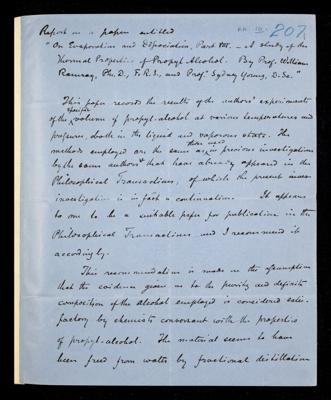 RR. 10. 207
Report on a paper entitled
"On Evaporation and Dissociation, Part VIII. - A study of the
Thermal Properties of Propyl Alcohol. By Prof. William
Ramsay, Ph.D., F.R.S., and Prof. Sydney Young, D.Sc."
This paper records the results of the authors' experiments
of the specific volume of propyl-alcohol at various temperatures and
pressures, both in the liquid and vaporous state. The
methods employed are the same as those used in previous investigations
by the same authors that have already appeared in the
Philosophical Transactions, of which the present inves-
investigation is in fact a continuation. It appears
to me to be a suitable paper for publication in the
Philosophical Transactions and I recommend it
accordingly.
This recommendation is made on the assumption
that the evidence given as to the purity and definite
composition of the alcohol employed is considered satis-
factory by chemists conversant with the properties
of propyl-alcohol. The material seems to have
been freed from water by fractional distillation